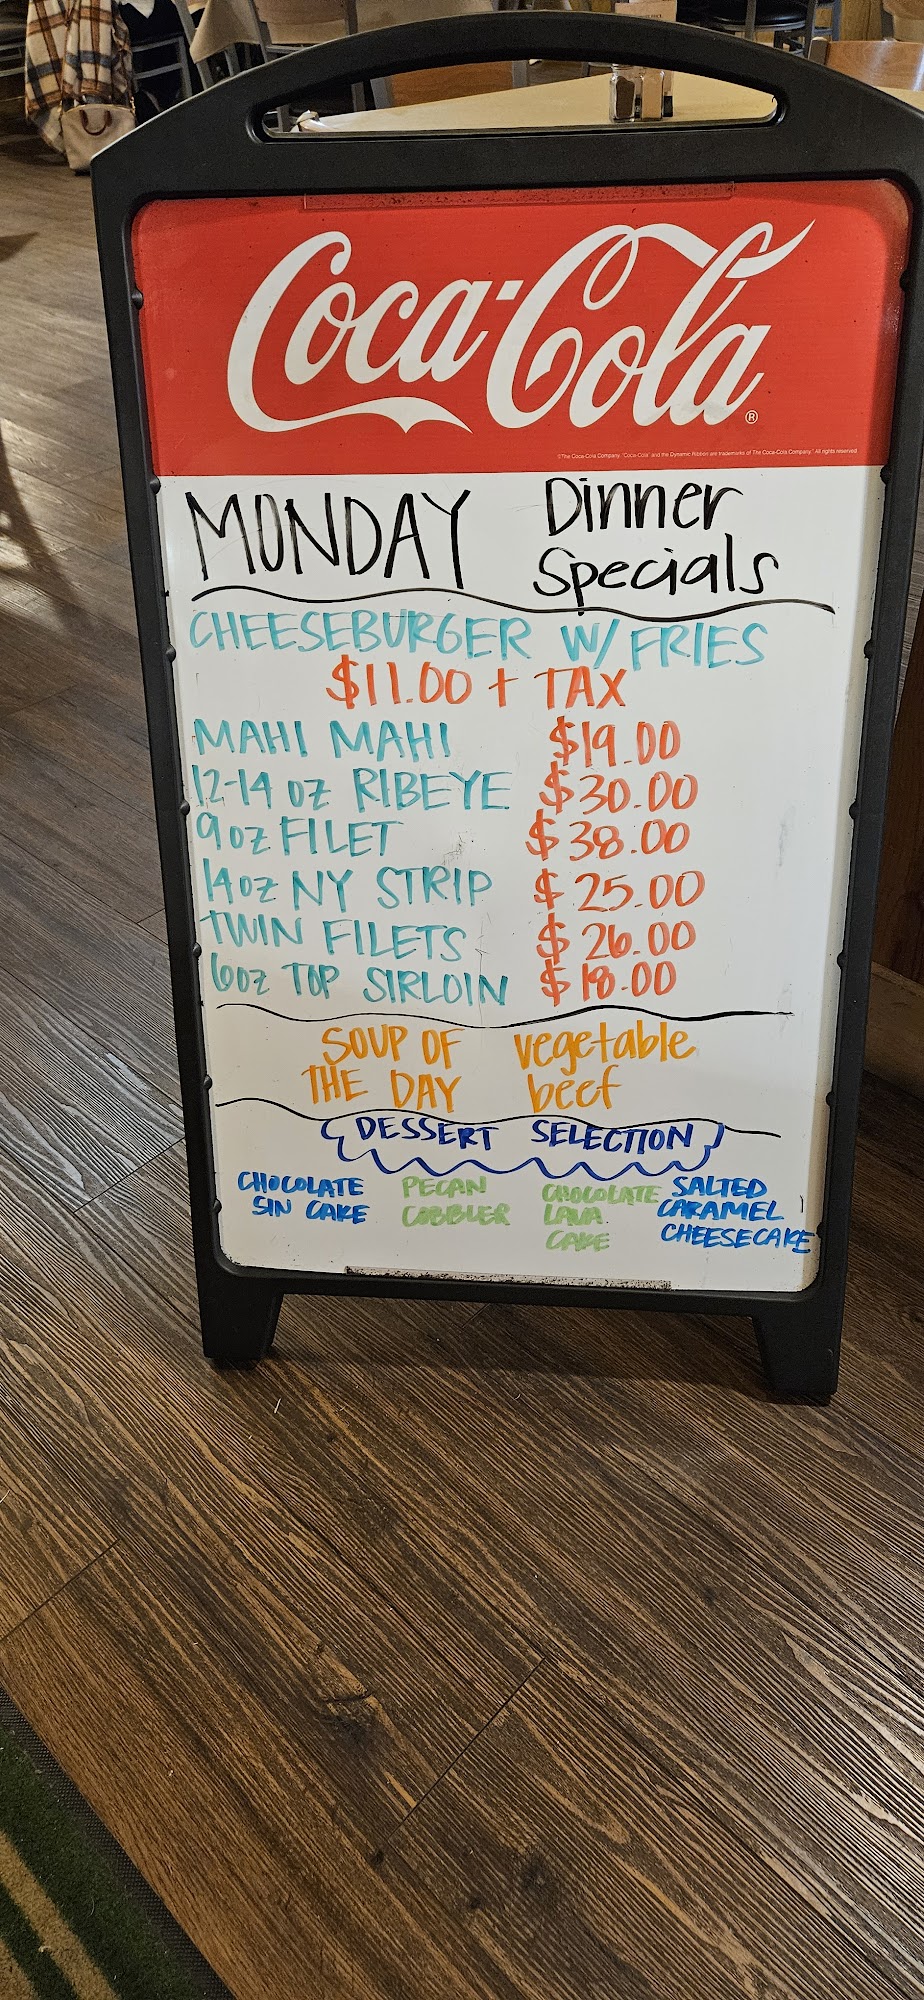 Coca-Cola®
©The Coca-Cola Company. "Coca-Cola" and the Dynamic Ribbon are trademarks of The Coca-Cola Company. All rights reserved.
MONDAY Dinner
Specials
CHEESEBURGER W/ FRIES
$11.00 + TAX
MAHI MAHI $19.00
12-14 oz RIBEYE $30.00
9 oz FILET $38.00
14oz NY STRIP $25.00
TWIN FILETS $26.00
6oz TOP SIRLOIN $18.00
SOUP OF vegetable
THE DAY beef
DESSERT SELECTION
CHOCOLATE
SIN CAKE
PECAN
COBBLER
CHOCOLATE
LAVA
CAKE
SALTED
CARAMEL
CHEESECAKE